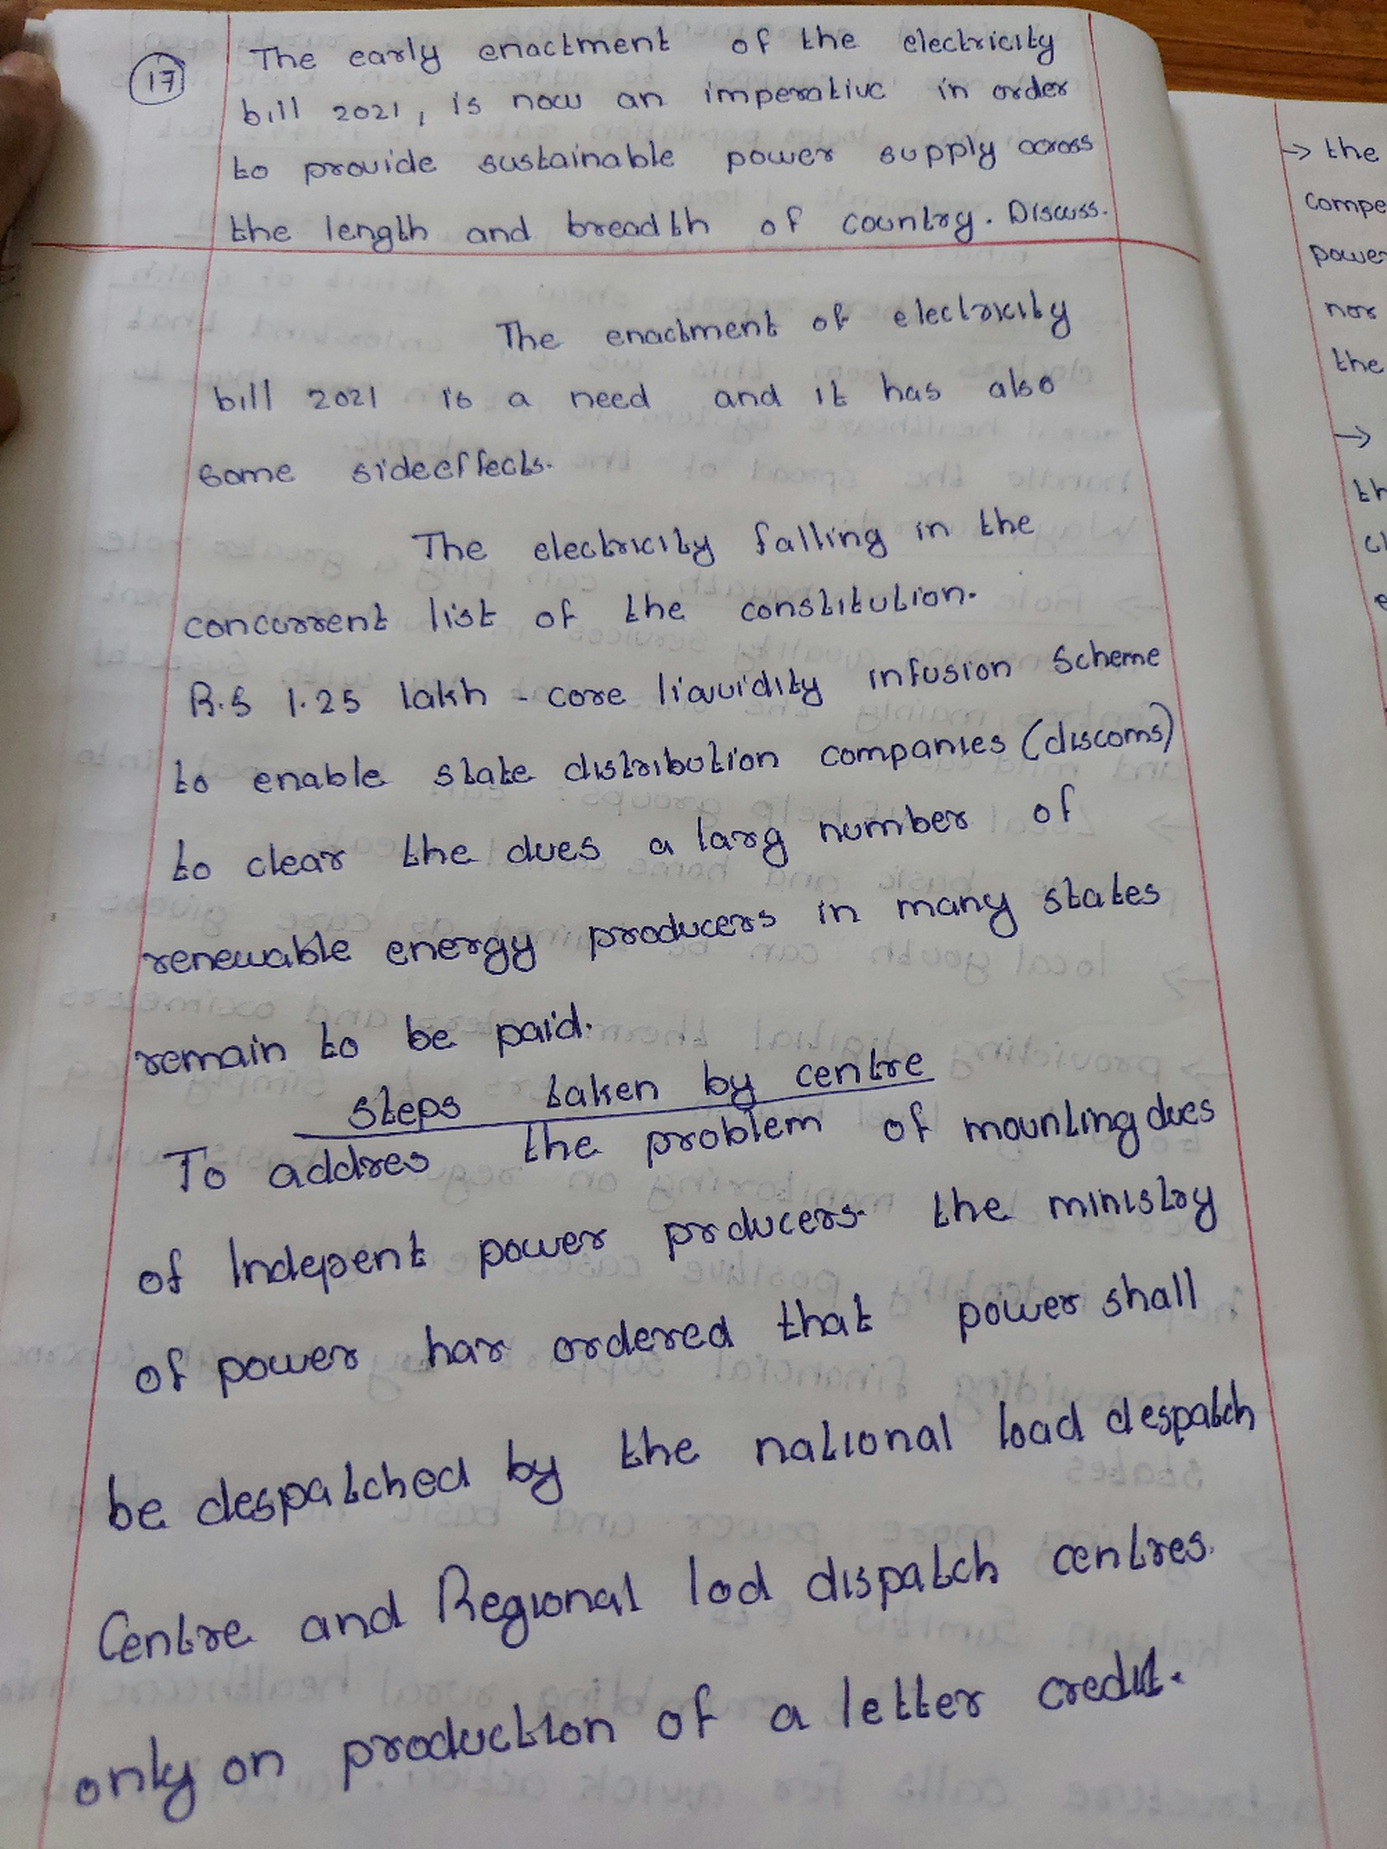 17
The early enactment of the electricity
bill 2021, is now an imperative in order
to provide sustainable power supply across
the length and breadth of country. Discuss.
The enactment of electricity
bill 2021 is a need and it has also
some sideeffects.
The electricity falling in the
concurrent list of the constitution.
R.S 1.25 lakh - core liquidity infusion scheme
to enable state distribution companies (discoms)
to clear the dues a larg number of
renewable energy producers in many states
remain to be paid.
steps taken by centre
To addres the problem of mounting dues
of Indepent power prducers. the ministry
of power har ordered that power shall
be despatched by the national load despatch
Centre and Regional lod dispatch centres.
only on production of a letter credit.
→ the
compe
power
nor
the
→
th
cl
e